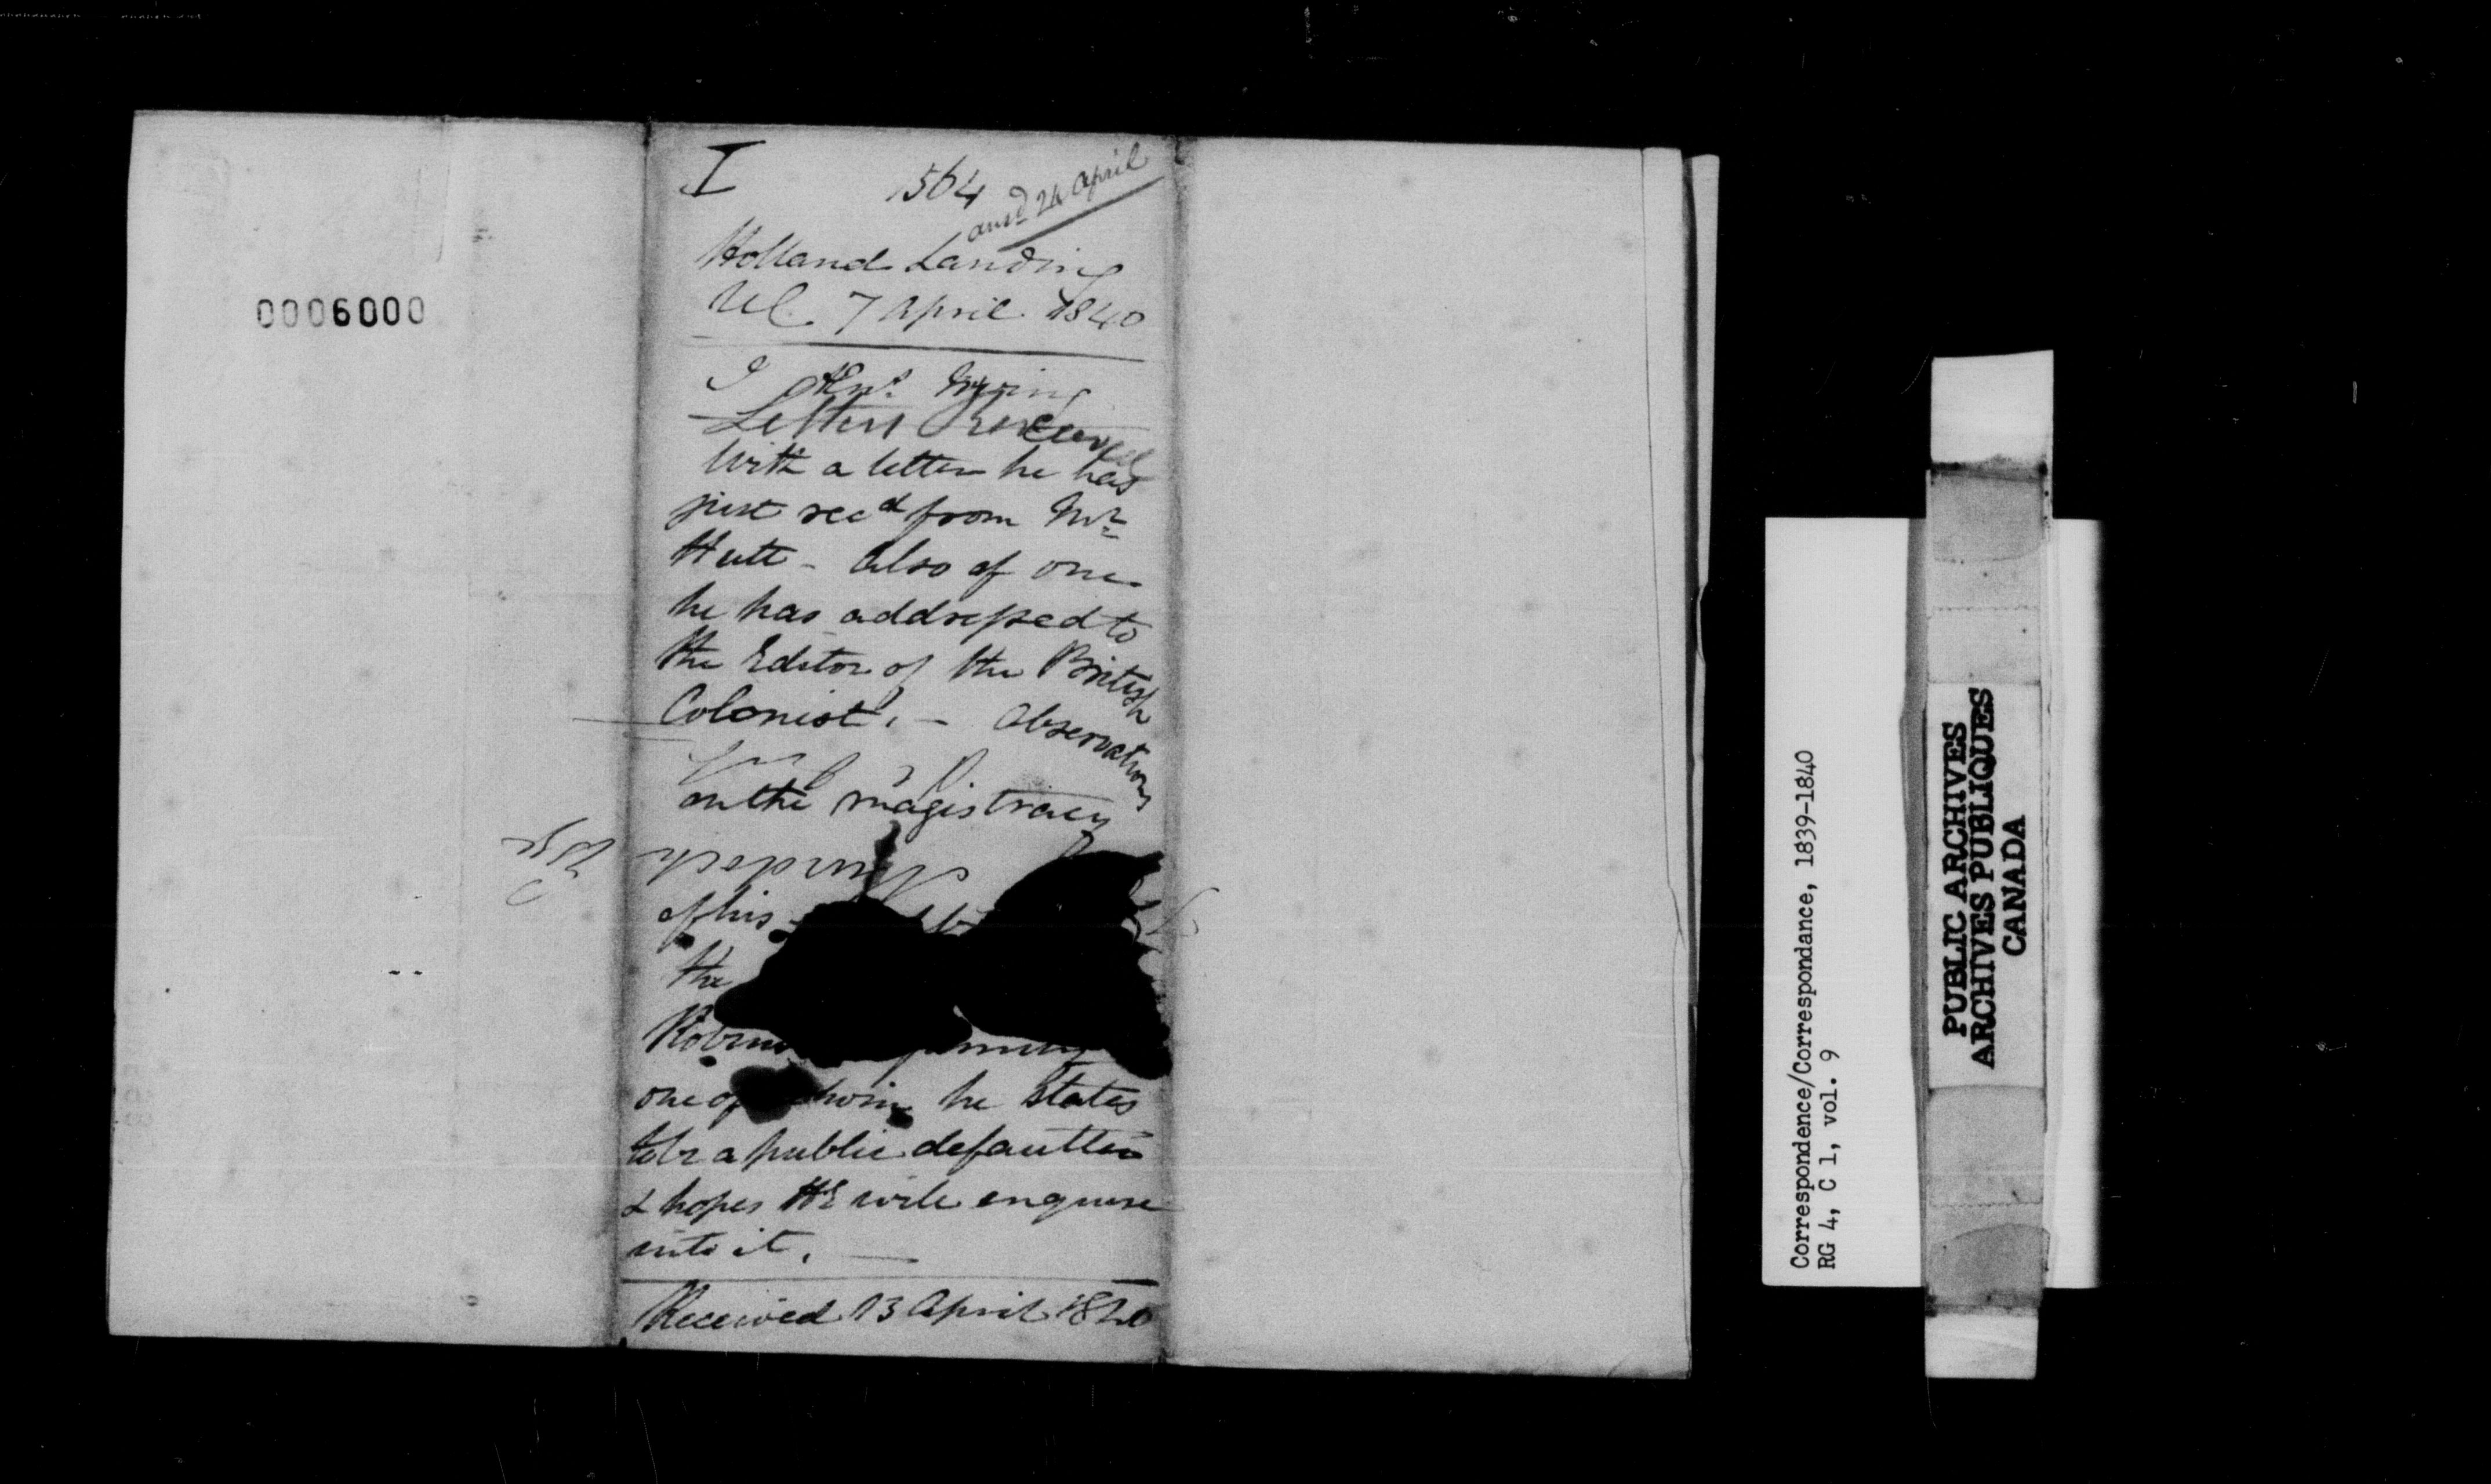 0006000
I
1564
ansd 24 April
Holland Landing
UC. 7 April 1840
Letters
with a letter he has
just recd from Mr
Hutt - also of one
he has addressed to
the Editor of the British
Colonist. - Observations
on the magistracy
Murdoch
of his
the
one of whom he states
to be a public defaulter
& hopes HE will enquire
into it.
Received 13 April 1840
Correspondence/Correspondance, 1839-1840
RG 4, C 1, vol. 9
PUBLIC ARCHIVES
ARCHIVES PUBLIQUES
CANADA